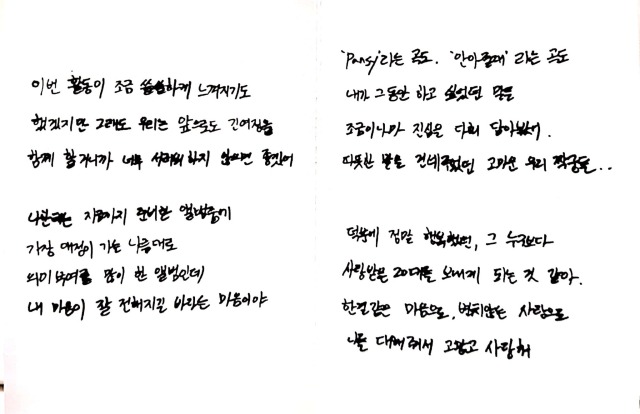 이번 활동이 조금 씁쓸하게 느껴지기도
했겠지만 그래도 우리는 앞으로도 긴여정을
함께 할거니까 너무 서러워하지 않으면 좋겠어
지금까지 준비한 앨범들중
가장 애정이 가는 나름대로
의미부여를 많이 한 앨범인데
내 마음이 잘 전해지길 바라는 마음이야
'Pansy'라는 곡도. '안아줄래' 라는 곡도
내가 그동안 하고 싶었던 말을
조금이나마 진심을 다해 담아봤어.
따뜻한 말을 건네주었던 고마운 우리 짝궁들..
덕분에 정말 행복했던, 그 누구보다
사랑받은 20대를 보내게 되는 것 같아.
한결같은 마음으로, 변치않는 사랑으로
나를 대해줘서 고맙고 사랑해